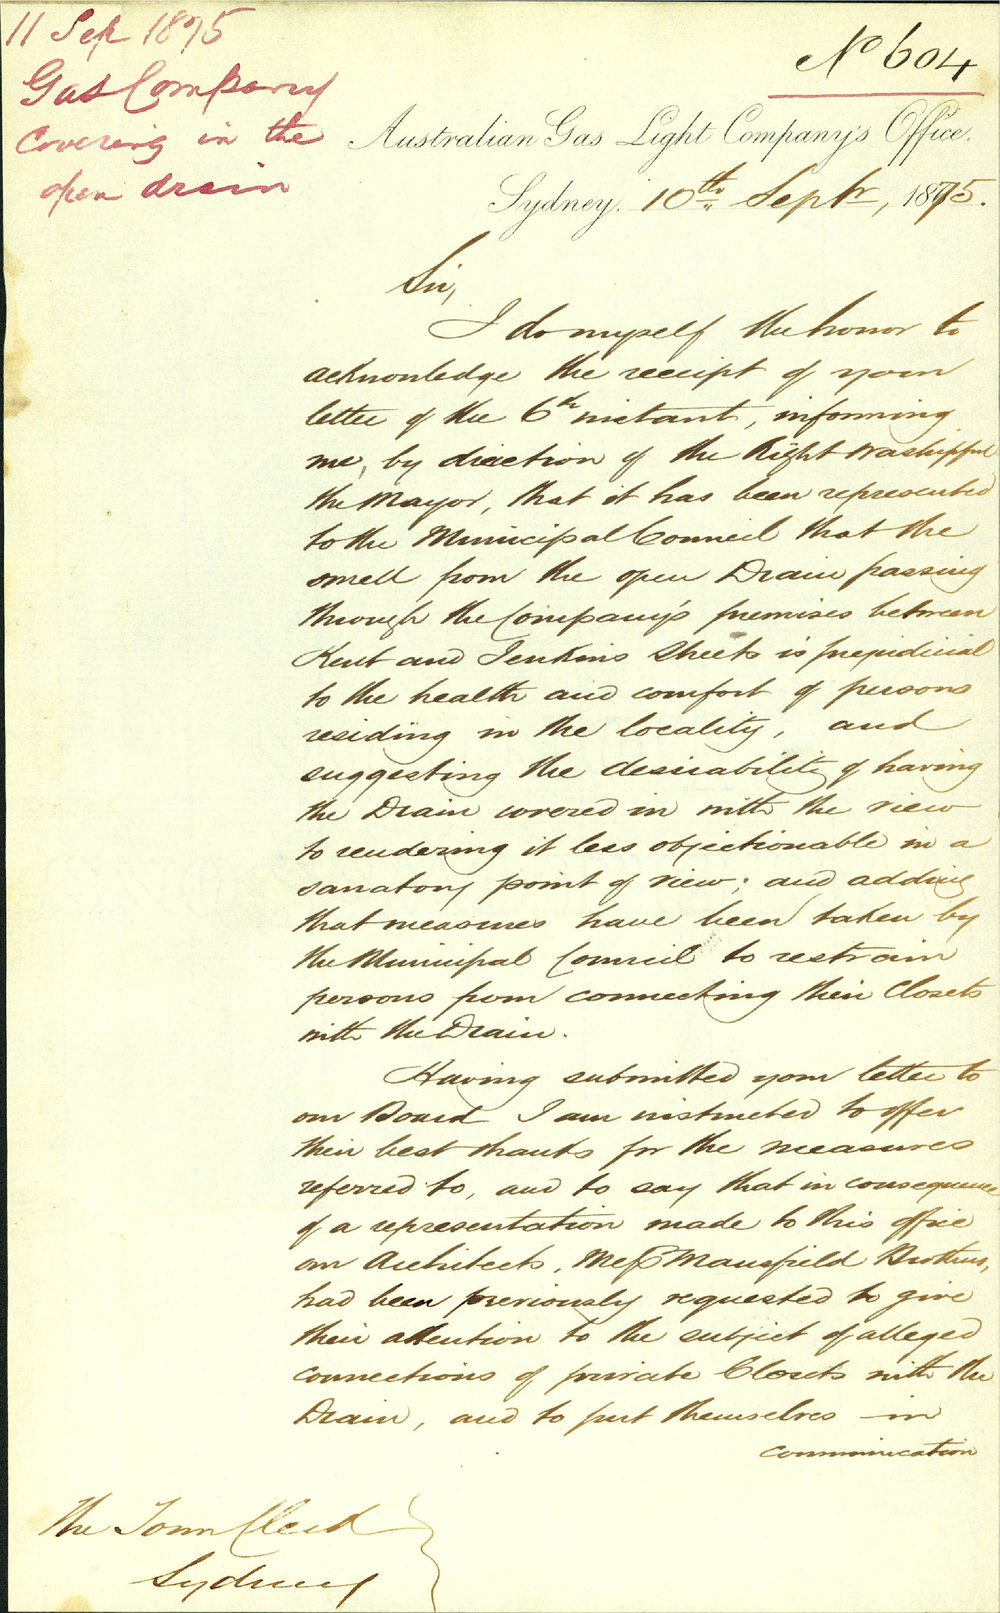 11 Sep 1875
Gas Company
Covering in the
open drain
No 604
Australian Gas Light Company's Office.
Sydney. 10th Septr, 1875.
Sir,
I do myself the honor to
acknowledge the receipt of your
letter of the 6th instant, informing
me, by direction of the Right Worshipful
the Mayor, that it has been represented
to the Municipal Council that the
smell from the open Drain passing
through the Company's premises between
Kent and Jenkins Streets is prejudicial
to the health and comfort of persons
residing in the locality, and
suggesting the desirability of having
the Drain covered in with the view
to rendering it less objectionable in a
sanatory point of view; and adding
that measures have been taken by
the Municipal Council to restrain
persons from connecting their Closets
with the Drain.
Having submitted your letter to
our Board I am instructed to offer
their best thanks for the measures
referred to, and to say that in consequence
of a representation made to this office
our Architects, Messrs Mansfield Brothers,
had been previously requested to give
their attention to the subject of alleged
connections of private Closets with the
Drain, and to put themselves in
communication
The Town Clerk
Sydney